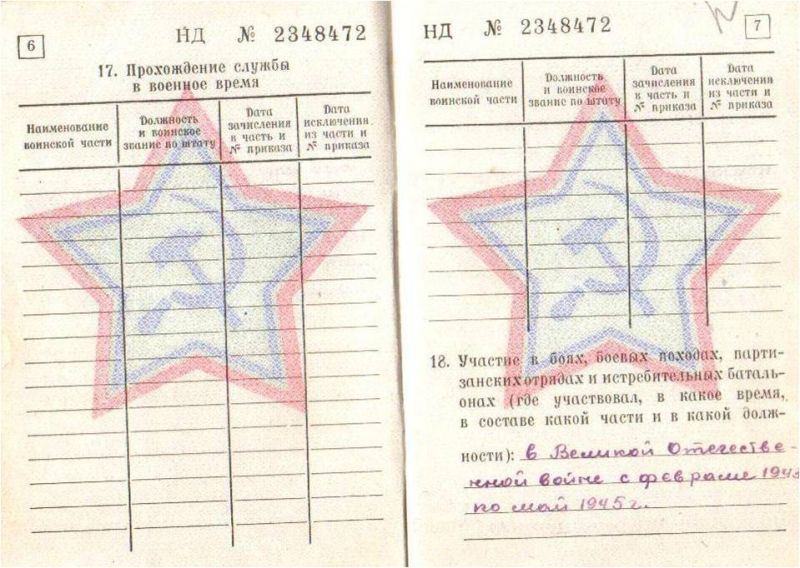 6
НД № 2348472
17. Прохождение службы
в военное время
Наименование
воинской части
Должность
и воинское
звание по штату
Дата
зачисления
в часть и
№ приказа
Дата
исключения
из части и
№ приказа
НД № 2348472
7
Наименование
воинской части
Должность
и воинское
звание по штату
Дата
зачисления
в часть и
№ приказа
Дата
исключения
из части и
№ приказа
18. Участие в боях, боевых походах, парти-
занских отрядах и истребительных баталь-
онах (где участвовал, в какое время,
в составе какой части и в какой долж-
ности): в Великой Отечестве-
нной войне с февраля
по май 1945 г.